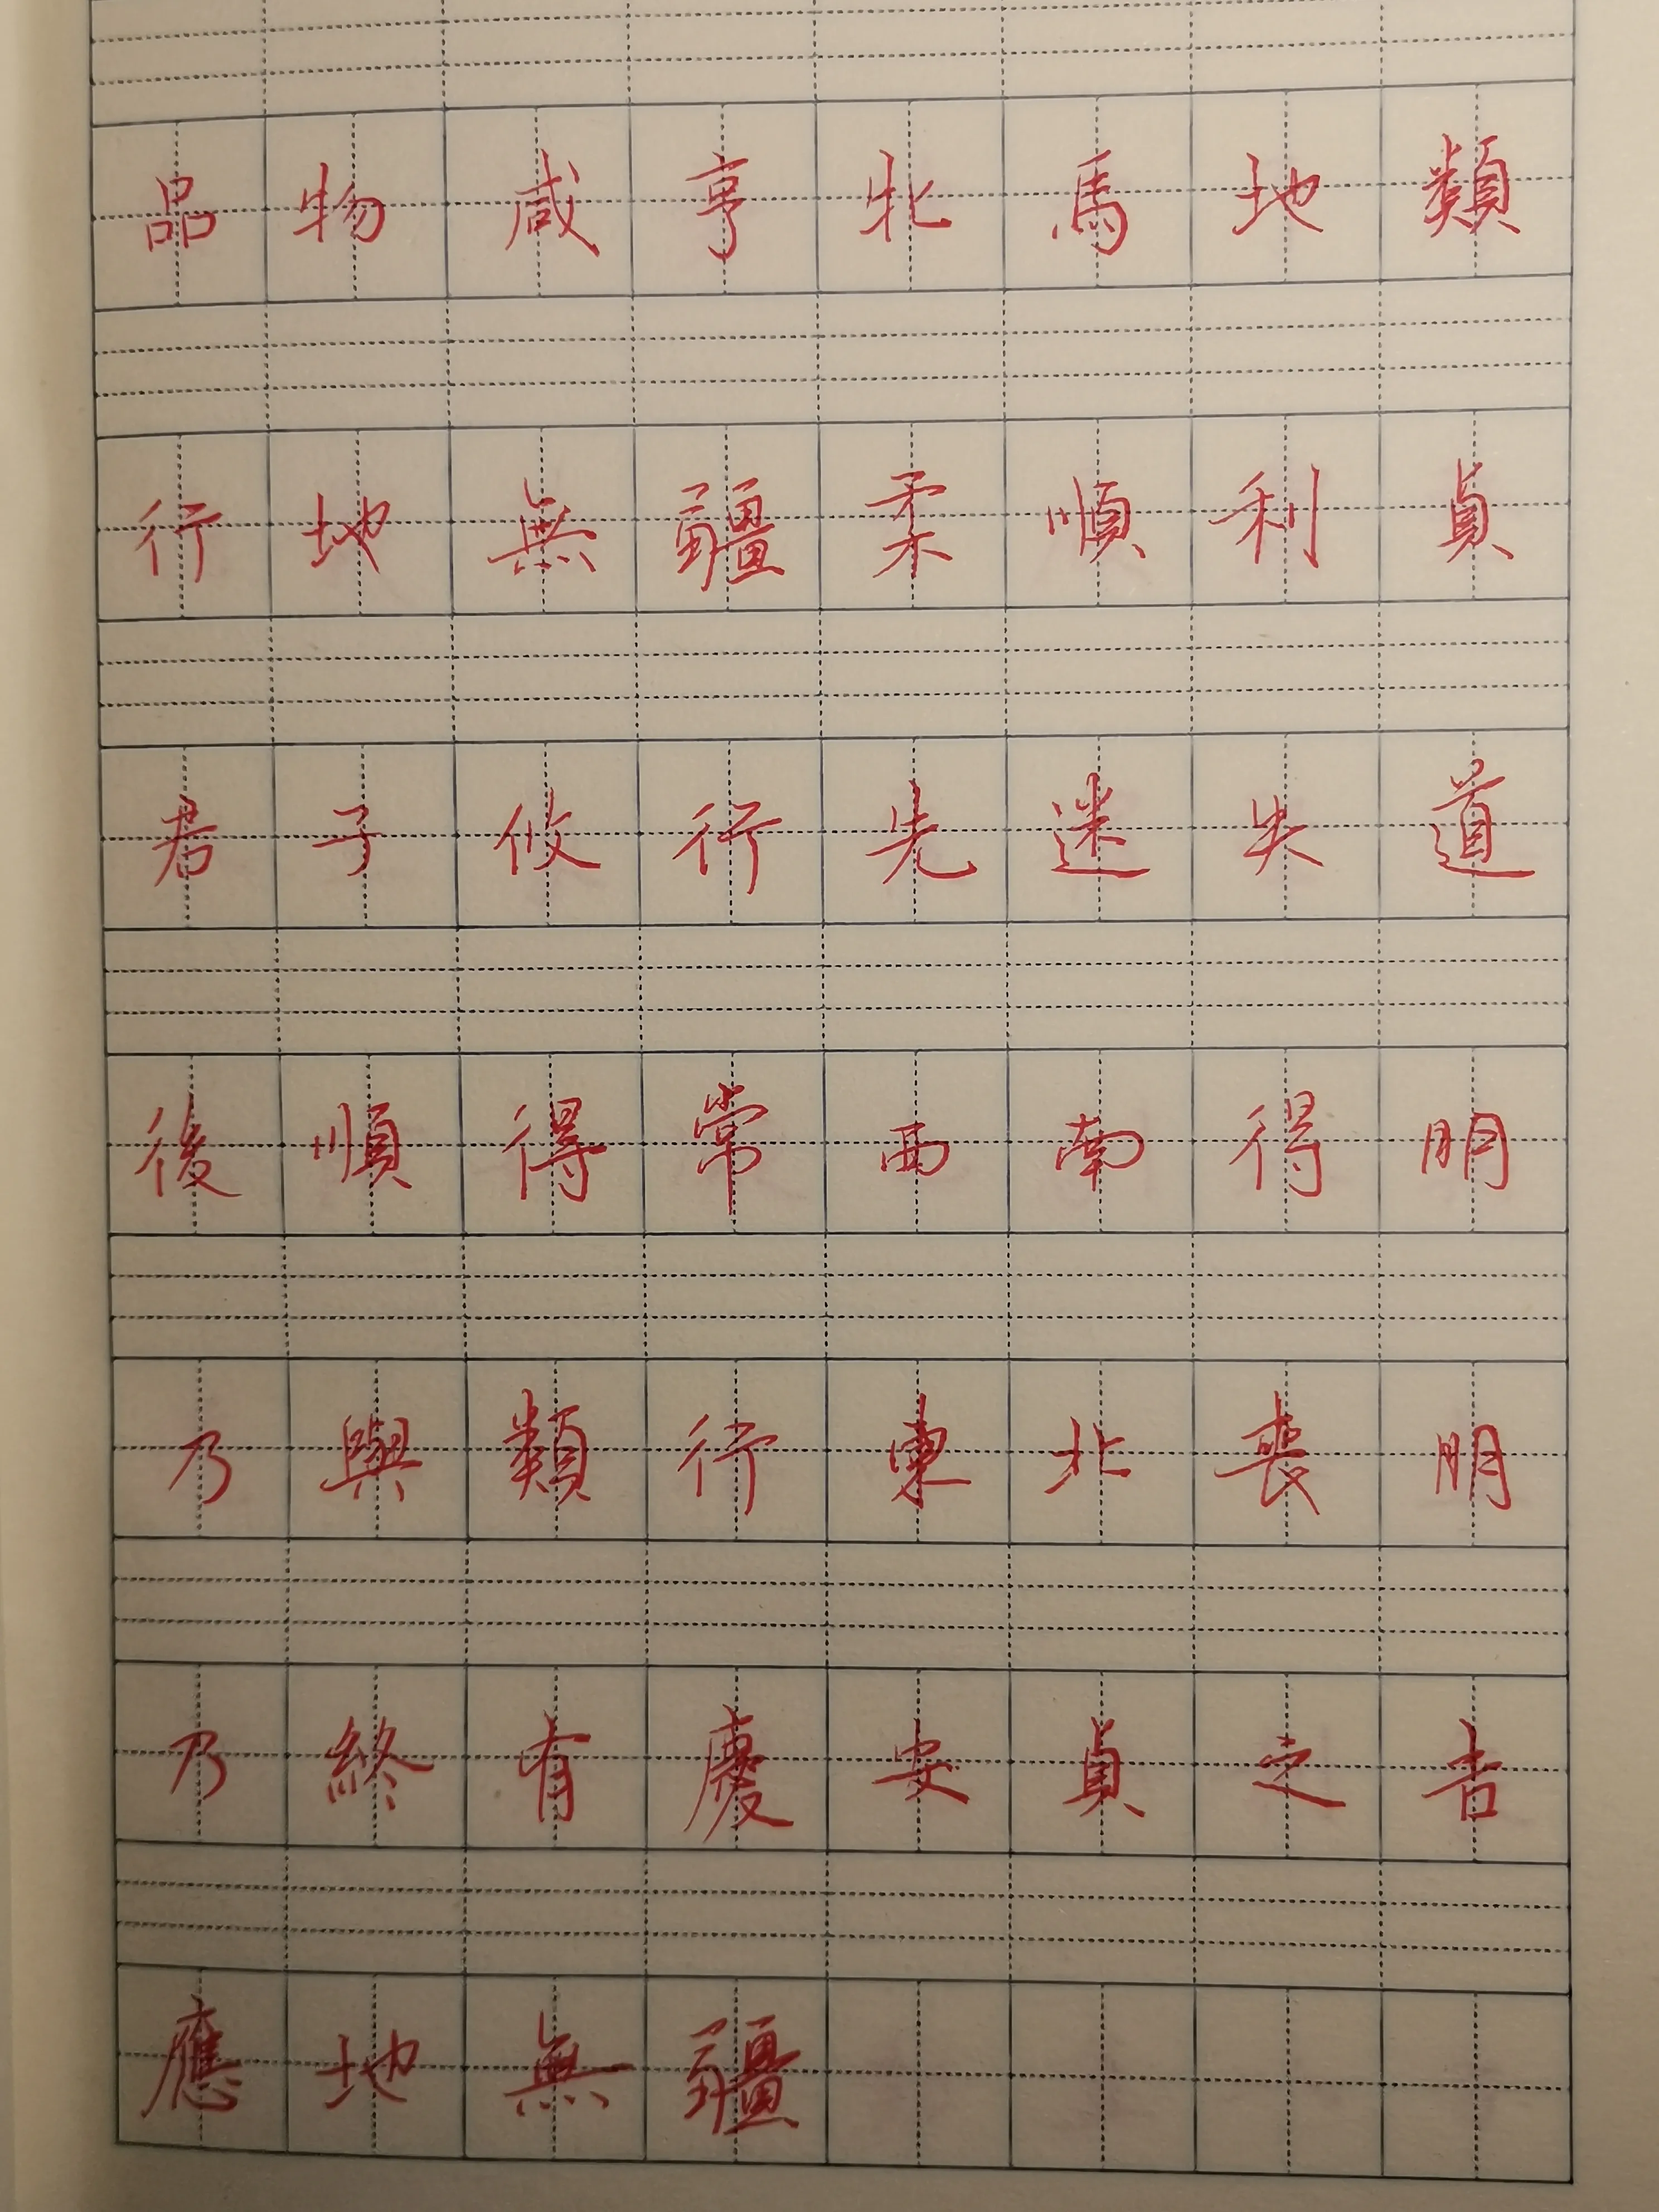 品物咸亨牝馬地類
行地無疆柔順利貞
君子攸行先迷失道
後順得常西南得朋
乃與類行東北喪朋
乃終有慶安貞之吉
應地無疆